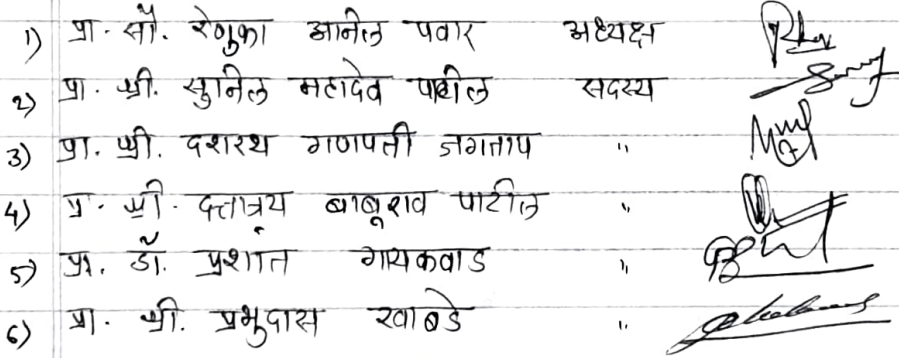 1) प्रा. सौ. रेणुका अनिल पवार अध्यक्ष
2) प्रा. श्री. सुनिल महादेव पाटील सदस्य
3) प्रा. श्री. दशरथ गणपती जगताप "
4) प्रा. श्री. दत्तात्रय बाबूराव पाटील "
5) प्रा. डॉ. प्रशांत गायकवाड "
6) प्रा. श्री. प्रभुदास खाबडे "